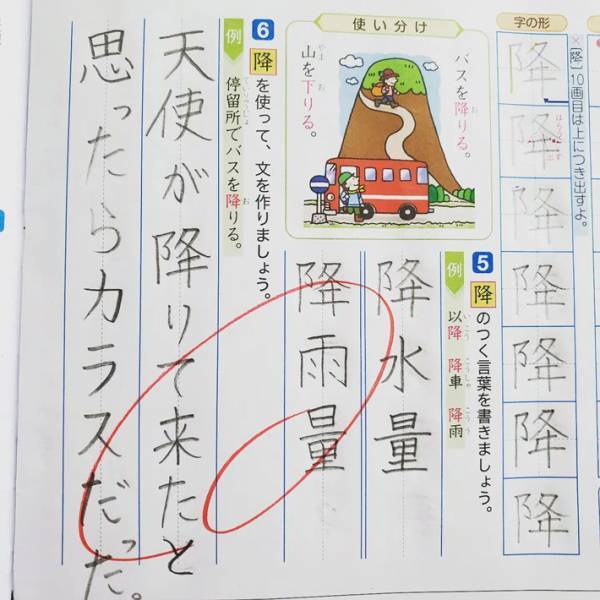 字の形
[降]10画目は上につき出すよ。
降
降
出す
降
降
降
降
降
使い分け
バスを降りる。
山を下りる。
5 降のつく言葉を書きましょう。
例 以降 降車 降雨
降水量
降雨量
6 降を使って、文を作りましょう。
例 停留所でバスを降りる。
天使が降りて来たと
思ったらカラスだった。